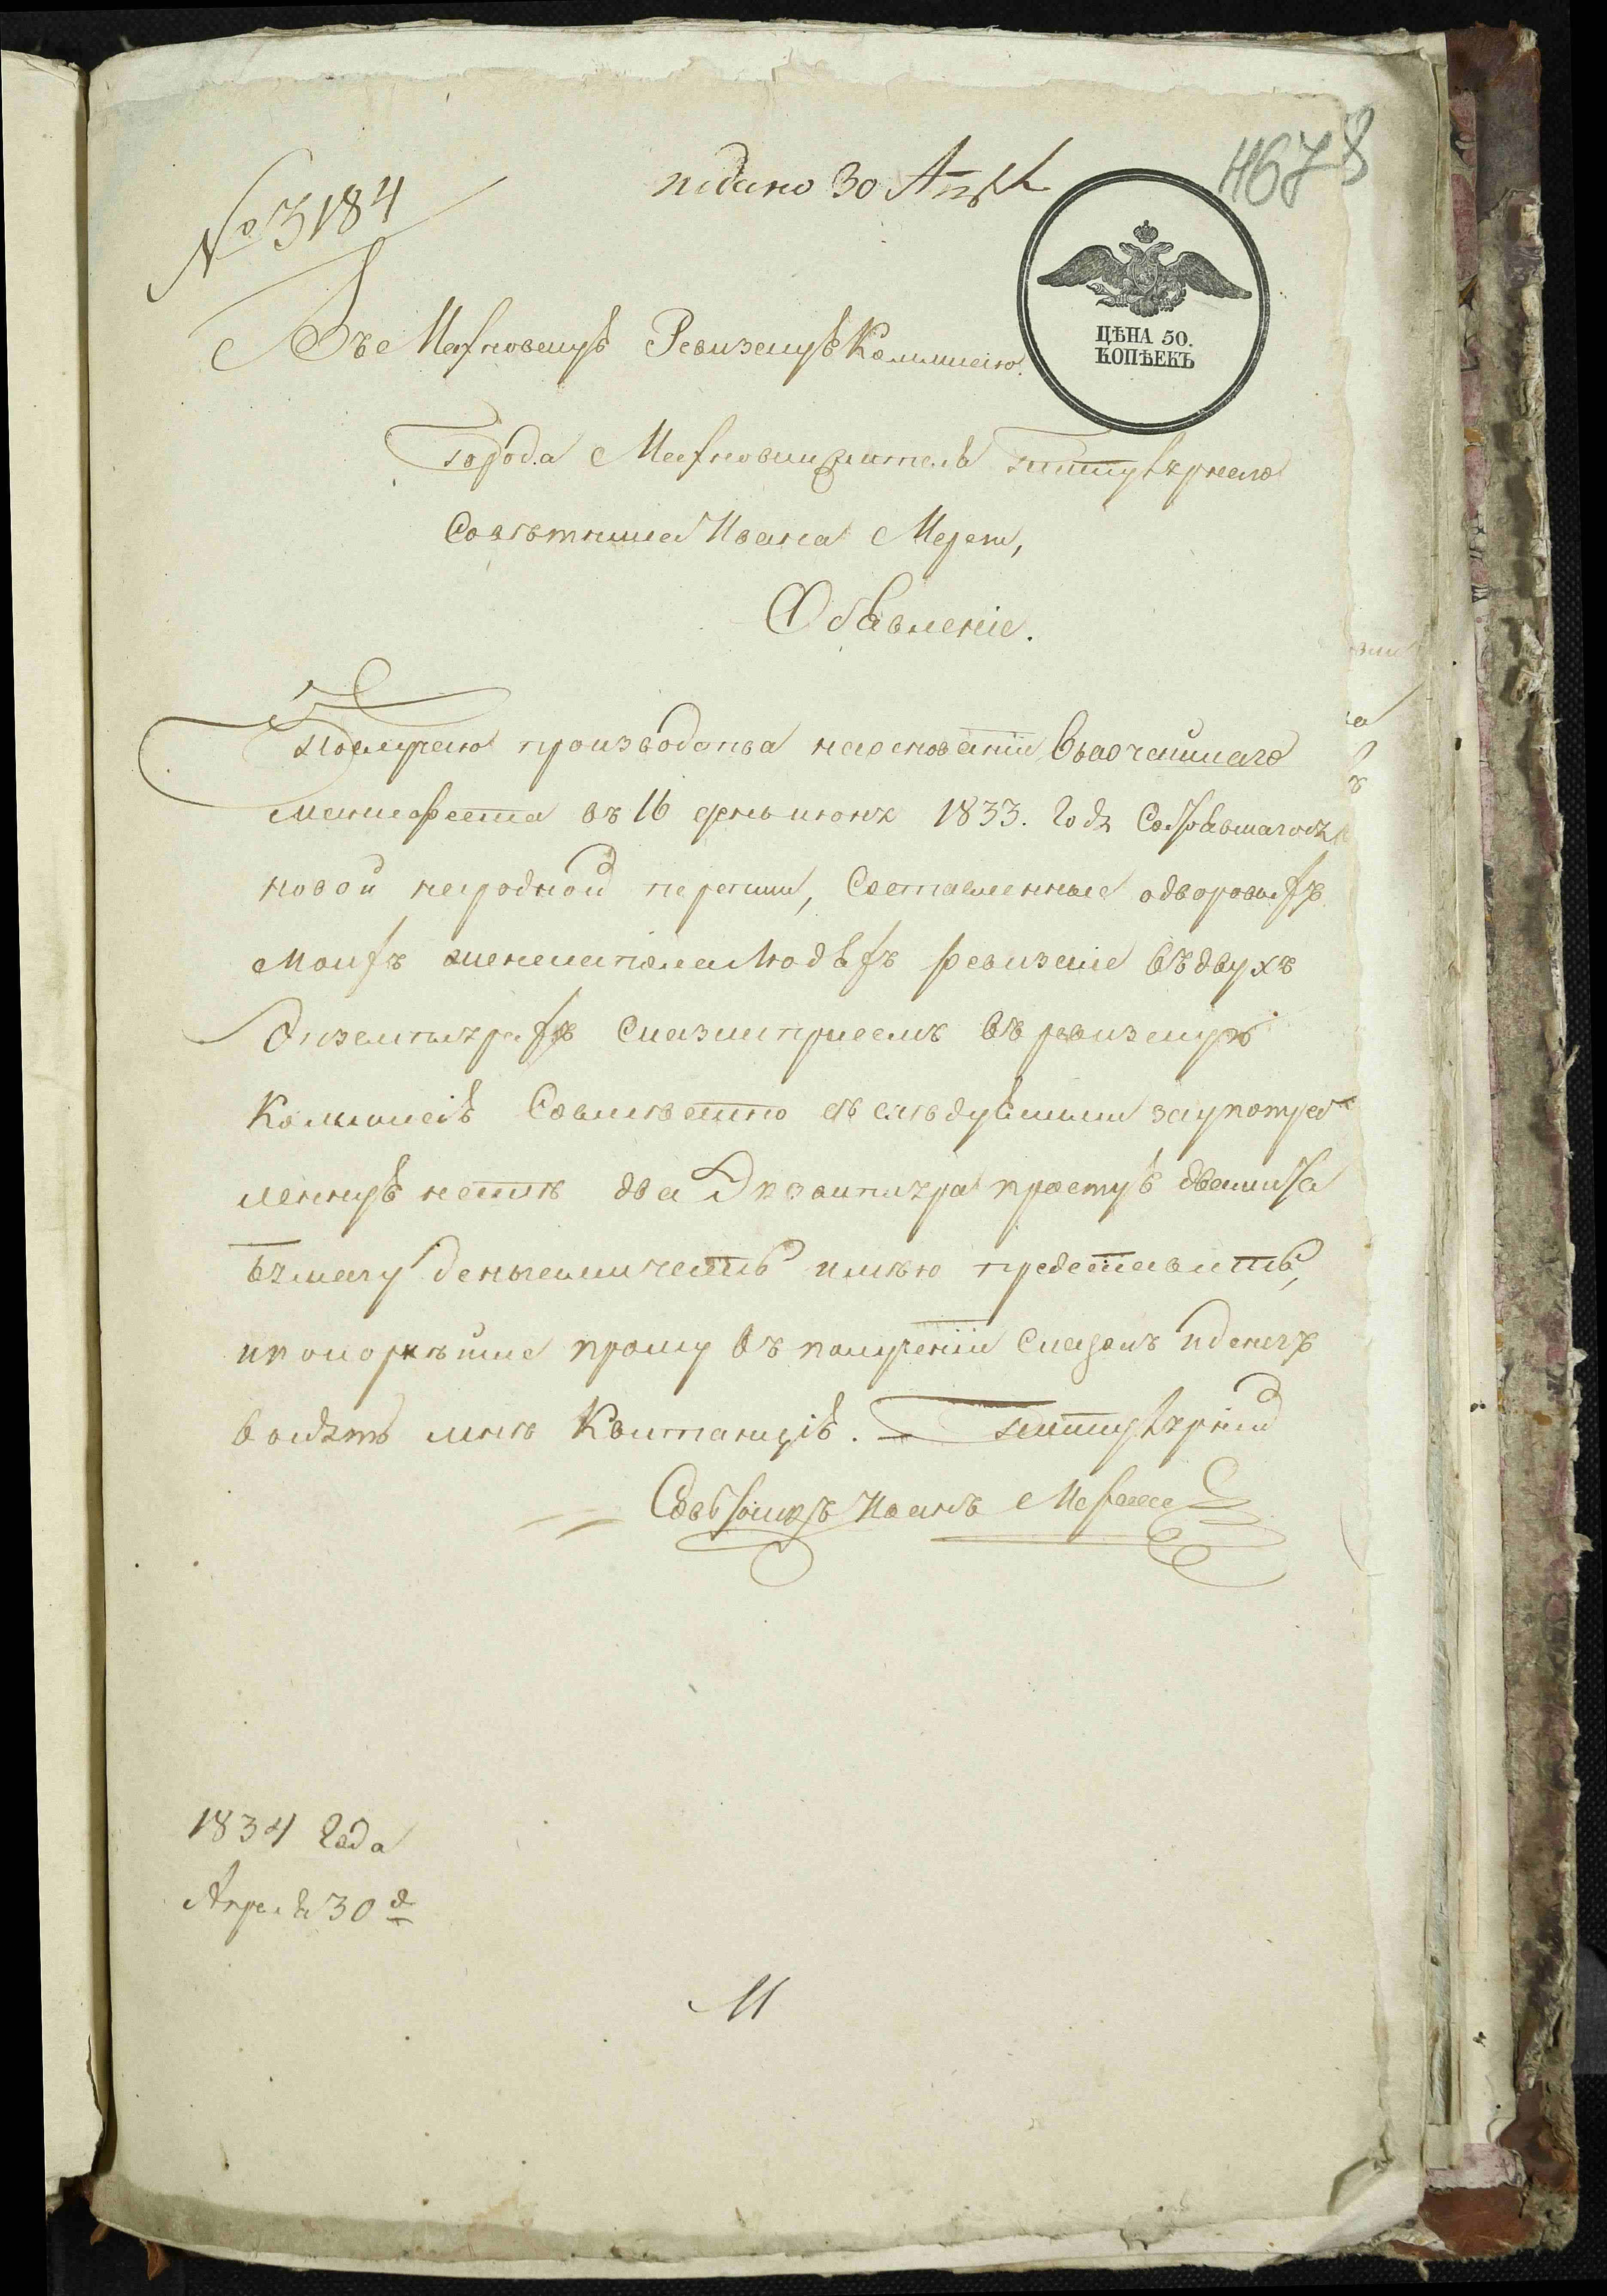 подано 30 Апрѣл
4678
№ 3184
ЦѢНА 50.
КОПѢЕКЪ
Въ Махновскую Ревизскую Коммисію.
Города Махновки жителя титулярнаго
Совѣтника Ивана
Объявленіе.
По случаю производства на основаніи Высочайшаго
манифеста въ 16 день июня 1833. года
новой народной переписи, составленные о дворовыхъ
моихъ женска пола людяхъ ревизскіе въ двухъ
Экземплярахъ сказки при семъ въ ревизскую
Коммисію совместно съ слѣдующими за употреб
ленную на тѣхъ два Экземпляра простую
бумагу деньгами честь имѣю представить,
и покорнѣйше прошу въ полученіи сказокъ и денегъ
выдать мнѣ Квитанцію. Титулярній
Совѣтникъ Иванъ
1834 Года
Апреля 30 д